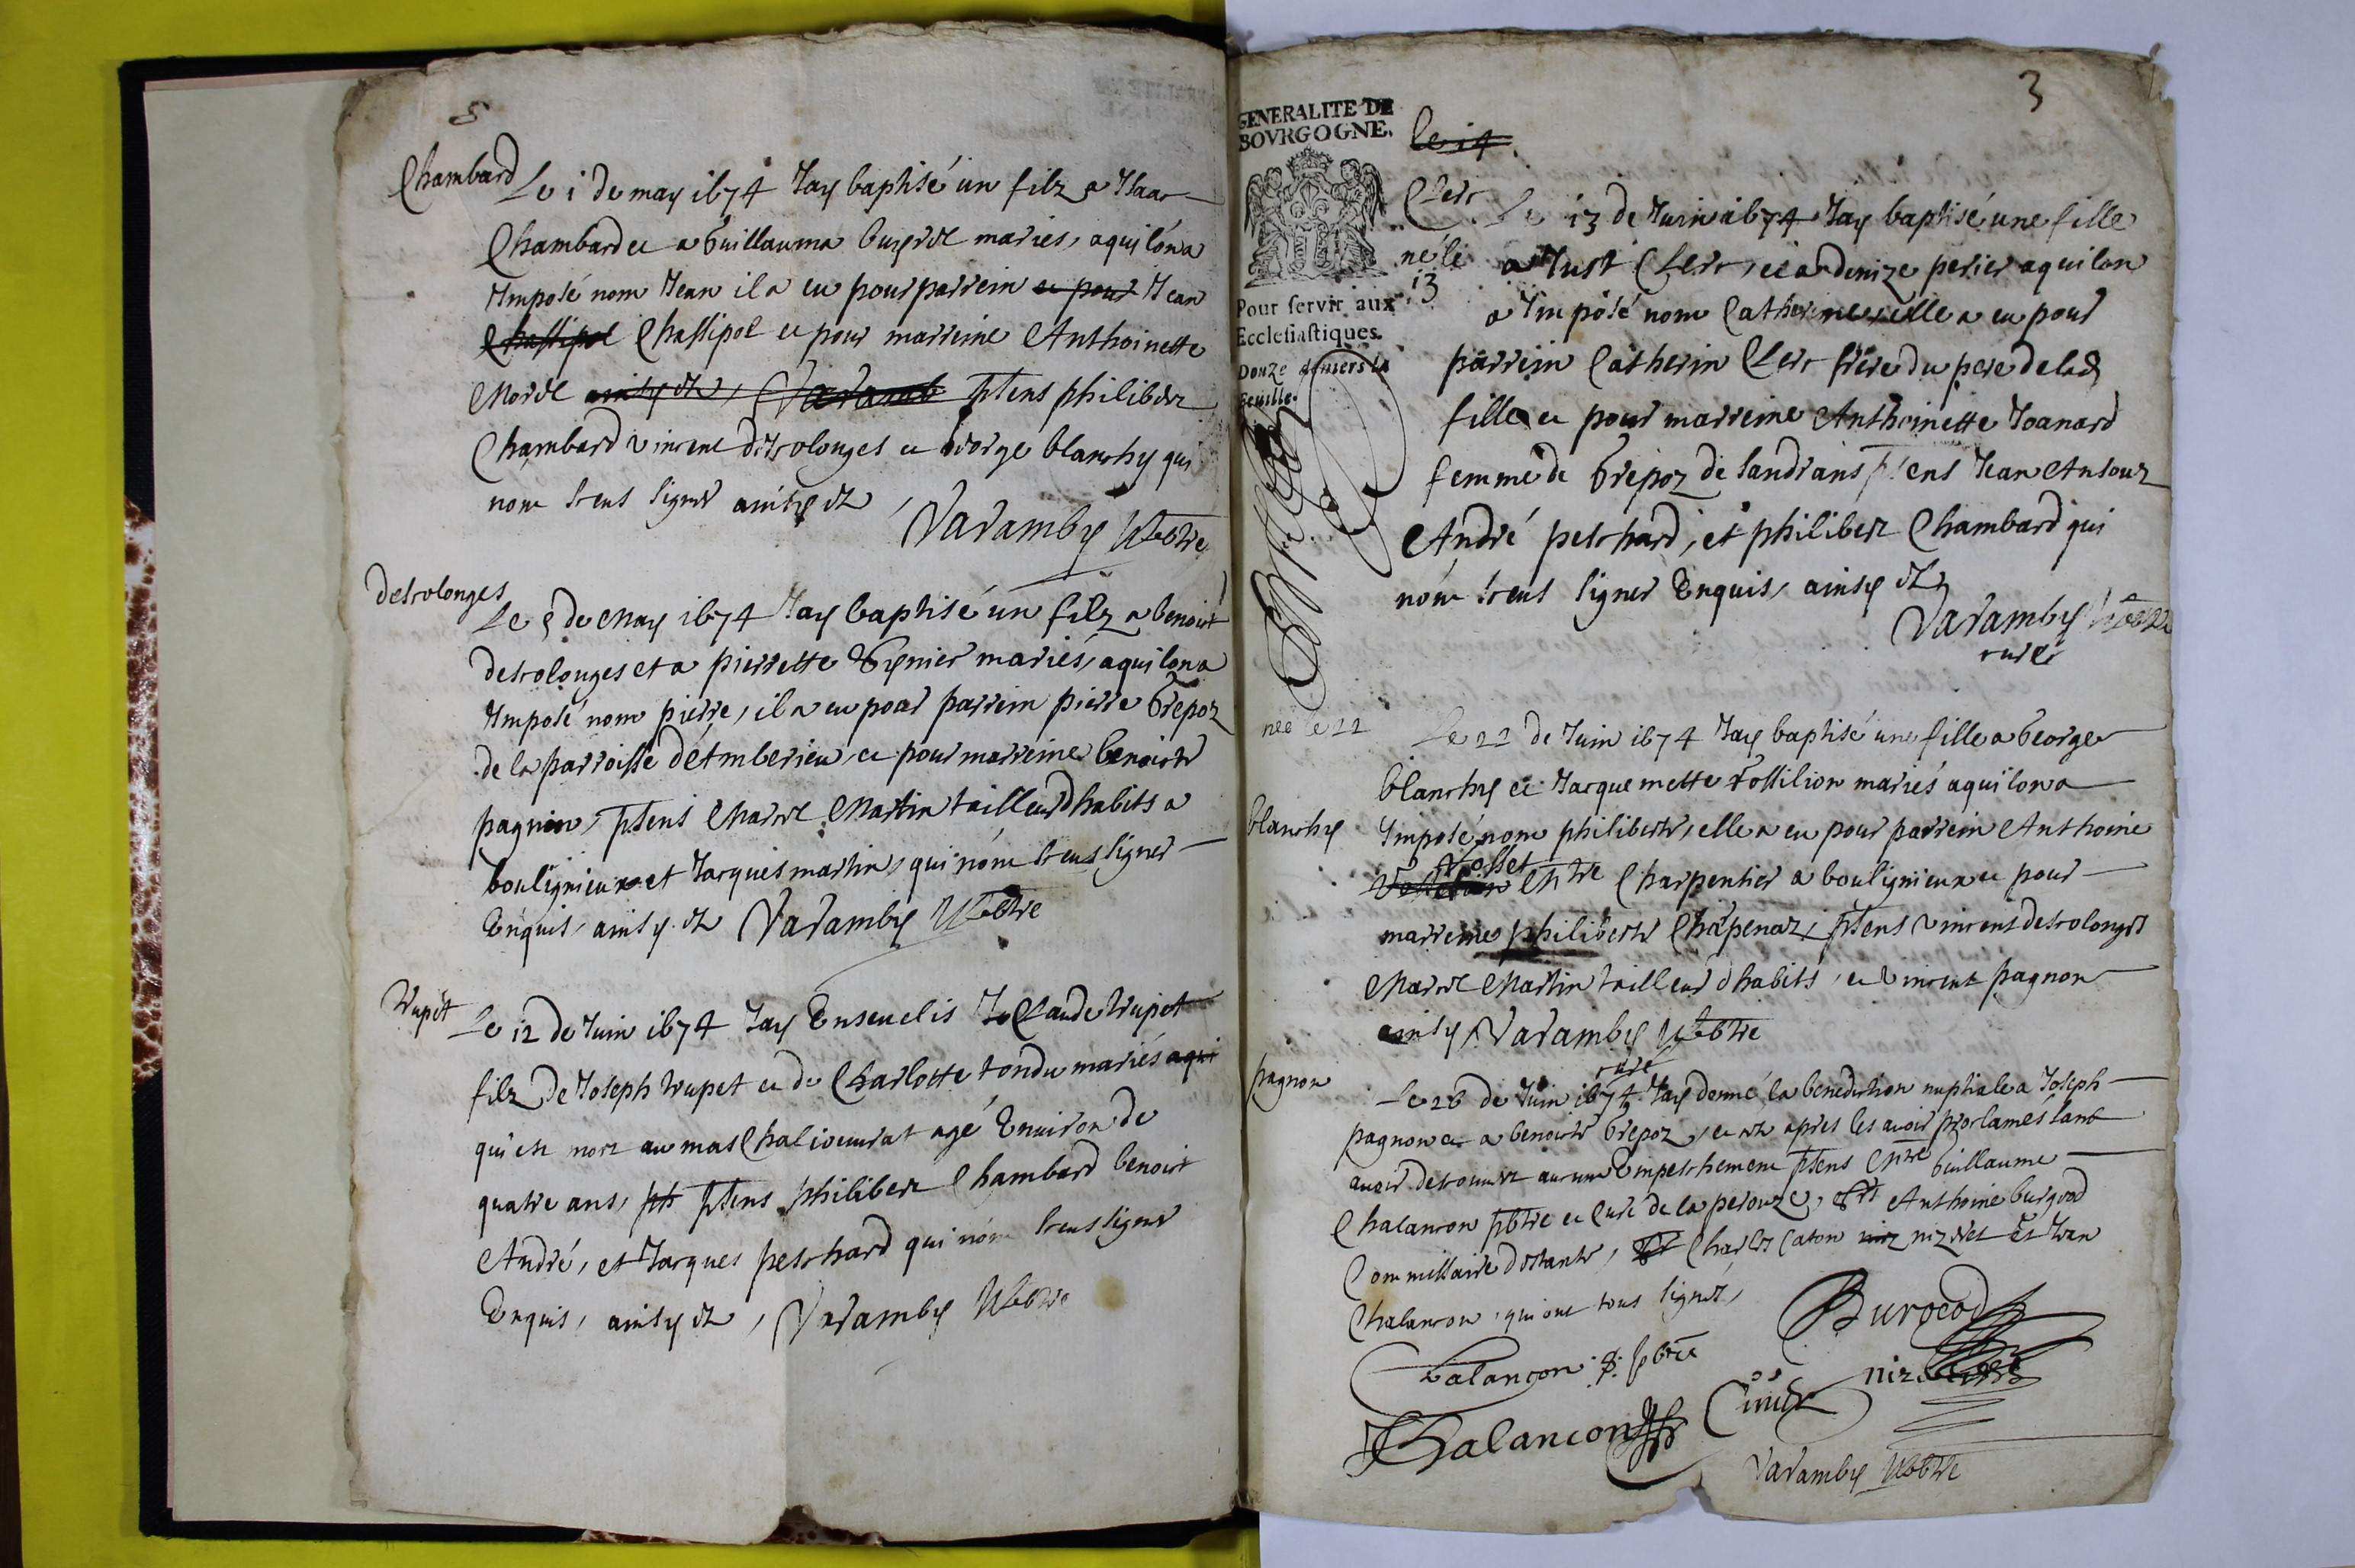 5
Chambard
Le 1 de may 1674 Jay baptisé un filz a Isaac
Chambard et a Guillauma mariés, aqui lona
Imposé nom Jean il a eu pour parrein et pour Jean
Chassipol Chassipol et pour marreine Anthoinette
Morel ainsy est, Varamb ptens philibert
Chambard vincent descolonges et George blanchy qui
nont sceus signer ainsy est
Varamby pbtre
descolonges
Le 5 de May 1674 Jay baptisé un filz a benoist
descolonges et a pierrette mariés, aqui lona
Imposé nom pierre, il a eu pour parrein pierre Grepoz
de la parroisse d'Amberieu, et pour marreine benoiste
pagnon, ptens Marcel Martin tailleur dhabits a
boulignieux et Jacques martin, qui nont sceus signer
Enquis, ainsy est Varamby pbtre
Trupet
Le 12 de Juin 1674 Jay Enseuelis Claude Trupet
filz de Joseph Trupet et de Charlotte tondu mariés aqui
qui est mort au mas agé Enuiron de
quatre ans, ph ptens philibert Chambard benoist
André, et Jacques peschard qui nont sceus signer
Enquis, ainsy est, Varamby pbtre
3
GENERALITE DE
BOVRGOGNE.
Pour servir aux
Ecclesiastiques.
Douze deniers la
feuille.
le 14
Clerc
né le
13
Le 13 de Juin 1674 Jay baptisé une fille
a Just Clerc, et a denize perier aqui lon
a Imposé nom Catherine, elle a eu pour
parrein Catherin Clerc frère du pere de lad
fille et pour marreine Anthoinette Joanard
femme de Grepoz de sandrans ptens Jean
André peschard, et philibert Chambard qui
nont sceus signer Enquis, ainsy est
Varamby pbtre
curé
née le 22
Le 22 de Juin 1674 Jay baptisé une fille a George
blanchy et Jacquemette mariés aqui lona
blanchy
Imposé nom philiberte, elle a eu pour parrein Anthoine
Vosset
Mtre Charpentier a boulignieux et pour
marreine philiberte Charpenaz, ptens vincent descolonges
Marcel Martin tailleur dhabits, et vincent pagnon
ainsy Varamby pbtre
curé
pagnon
Le 26 de Juin 1674 Jay donné la benediction nuptiale a Joseph
pagnon et a benoiste Grepoz, et ce apres les auoir proclames sans
auoir descouuert aucune Empeschement ptens Mtre Guillaume
Chalancon pbtre et Curé de la perouze, Anthoine burgod
Commissaire, Charles Caton niz nizeret et Jean
Chalancon, qui ont tous signés,
Burgod
Chalancon pbtre
nizeret
Chalancon
Varamby pbtre